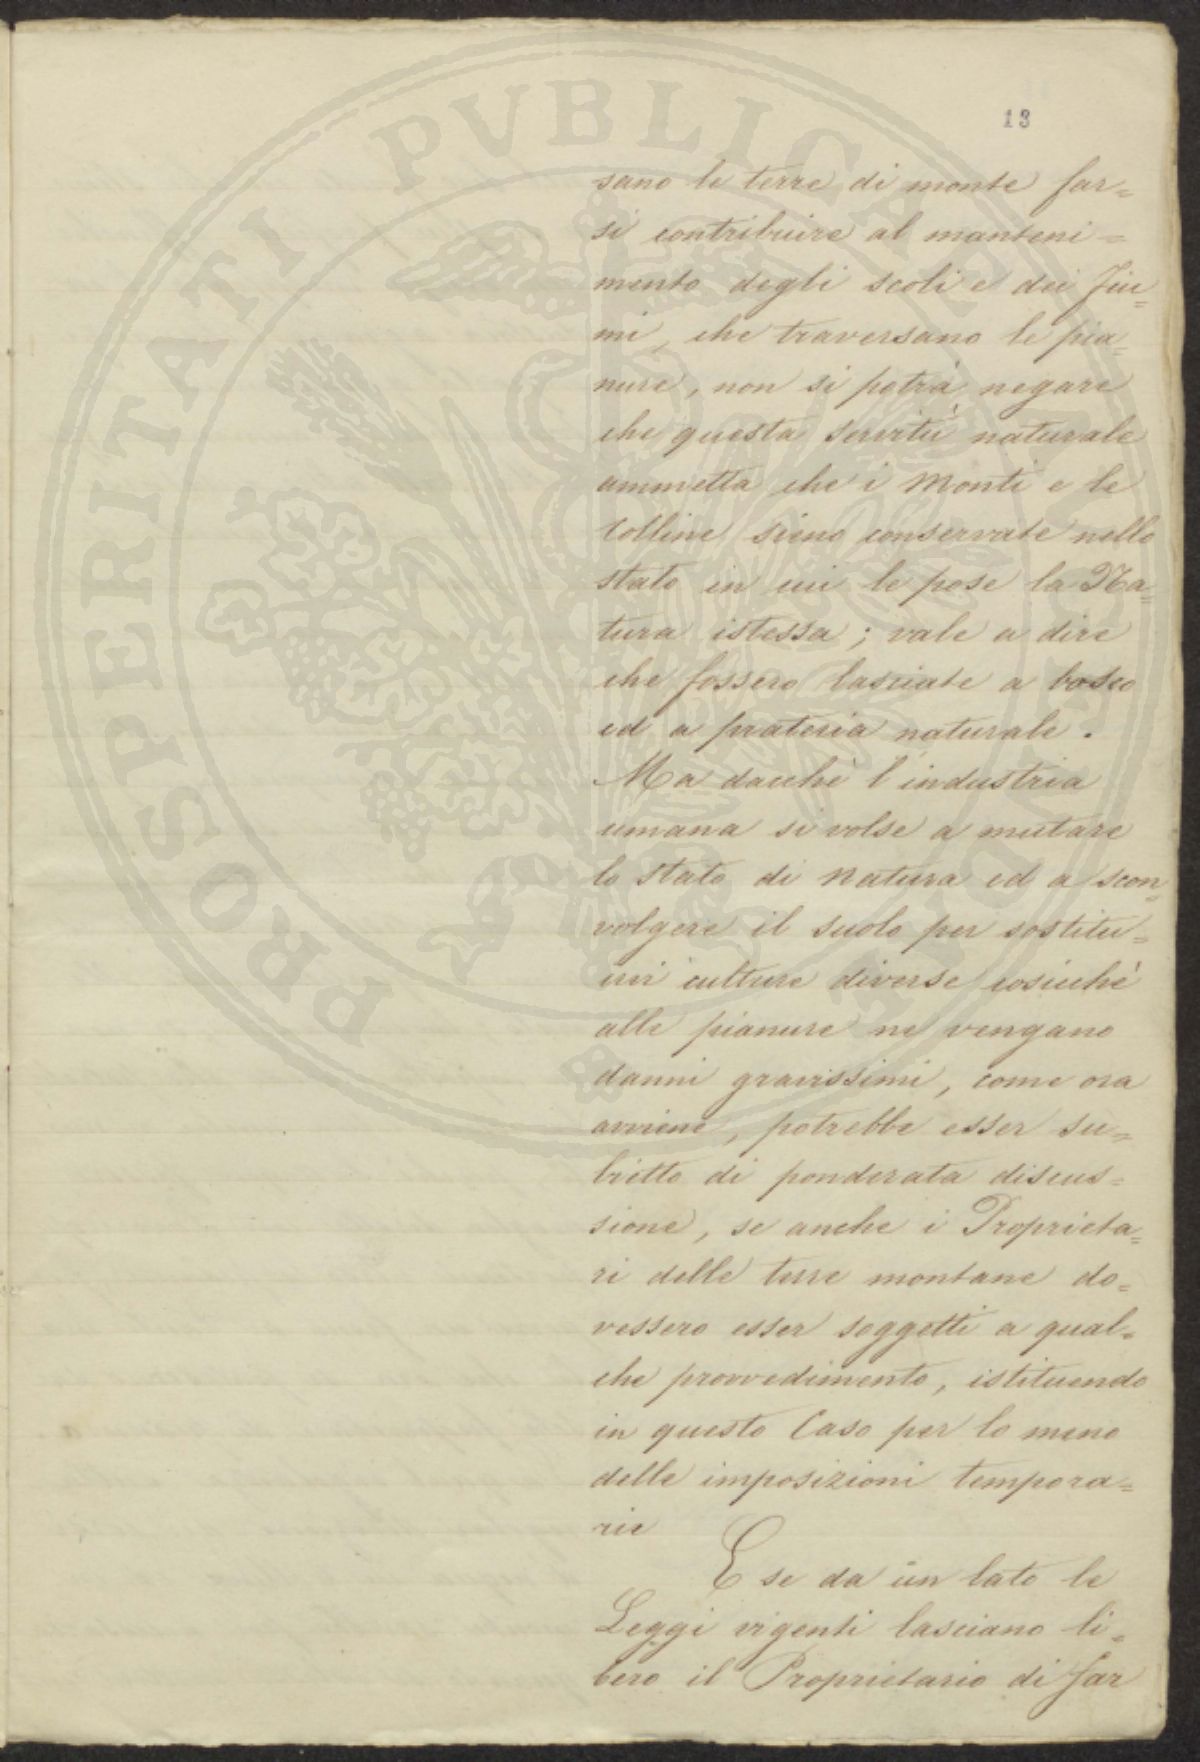 PROSPERITATI PVBLICAE
13
sano le terre di monte far=
si contribuire al manteni=
mento degli scoli e dei Fiu=
mi, che traversano le pia=
nure, non si potrà negare
che questa servitù naturale
ammetta che i Monti e le
Colline sieno conservate nello
stato in cui le pose la Na=
tura istessa; vale a dire
che fossero lasciate a bosco
ed a prateria naturale.
Ma dacchè l'industria
umana si volse a mutare
lo stato di natura ed a scon=
volgere il suolo per sostitu=
irvi culture diverse cosicchè
alle pianure ne vengano
danni gravissimi, come ora
avviene, potrebbe esser su=
bietto di ponderata discus=
sione, se anche i Proprieta=
ri delle terre montane do=
vessero esser soggetti a qual=
che provvedimento, istituendo
in questo Caso per lo meno
delle imposizioni tempora=
rie
E se da un lato le
Leggi vigenti lasciano li=
bero il Proprietario di far